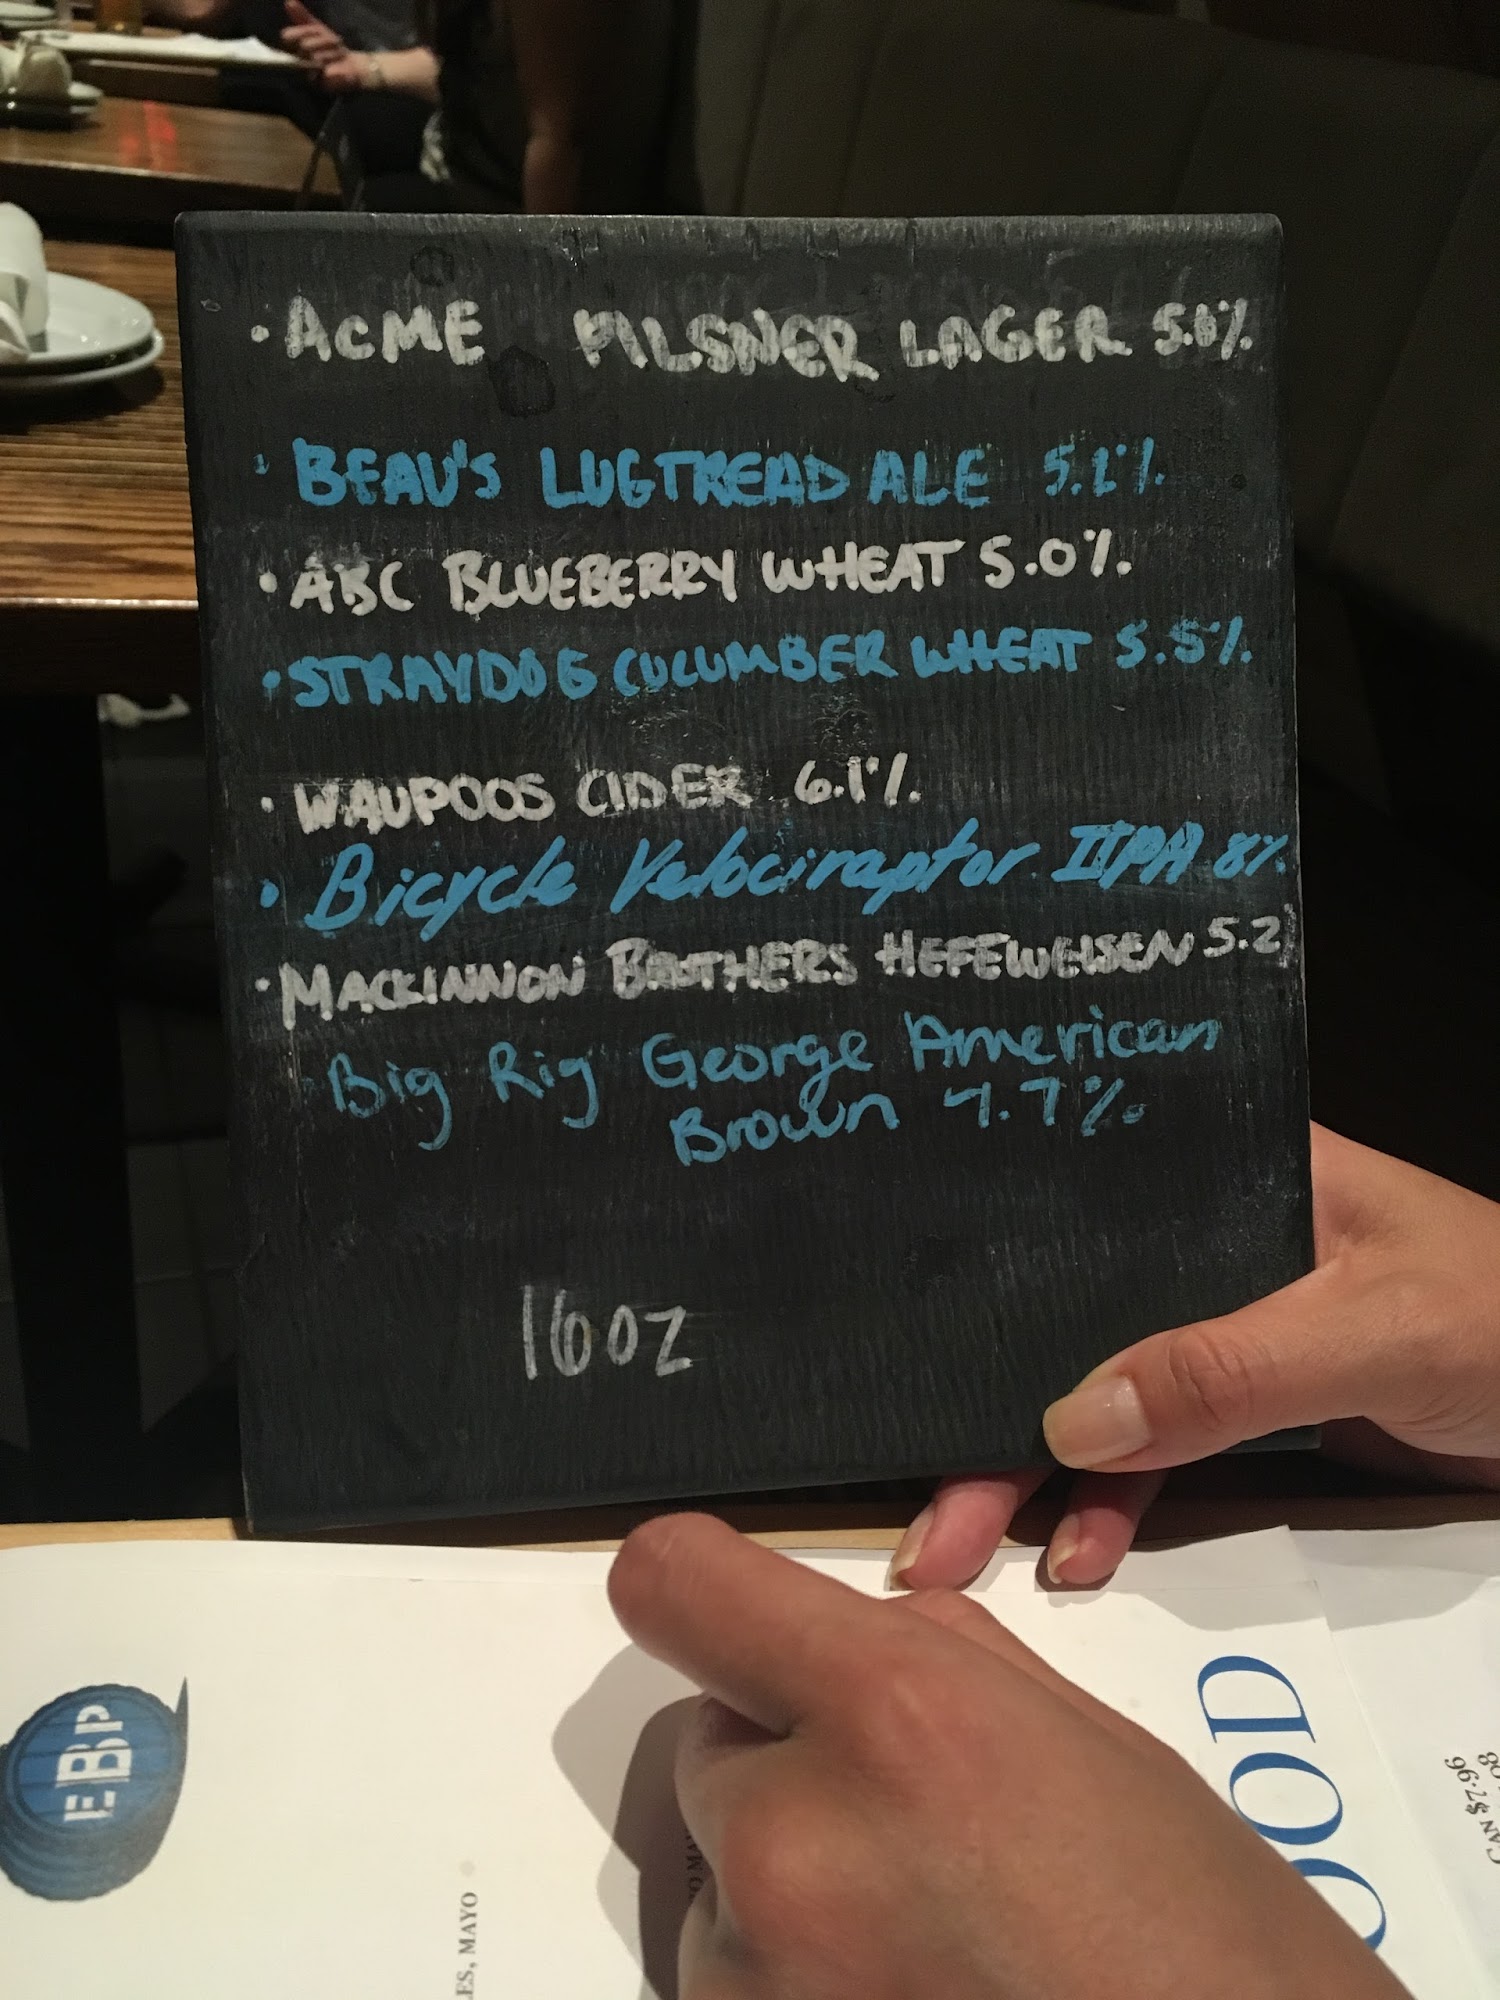 • ACME PILSNER LAGER 5.0%
• BEAU'S LUGTREAD ALE 5.2%
• ABC BLUEBERRY WHEAT 5.0%
• STRAYDOG CUCUMBER WHEAT 5.5%
• WAUPOOS CIDER 6.1%
• Bicycle Velociraptor IIPA 8%
• MACKINNON BROTHERS HEFEWEISEN 5.2
Big Rig George American
Brown 4.7%
16oz
EBP
LES, MAYO
OOD
CAN $7.96